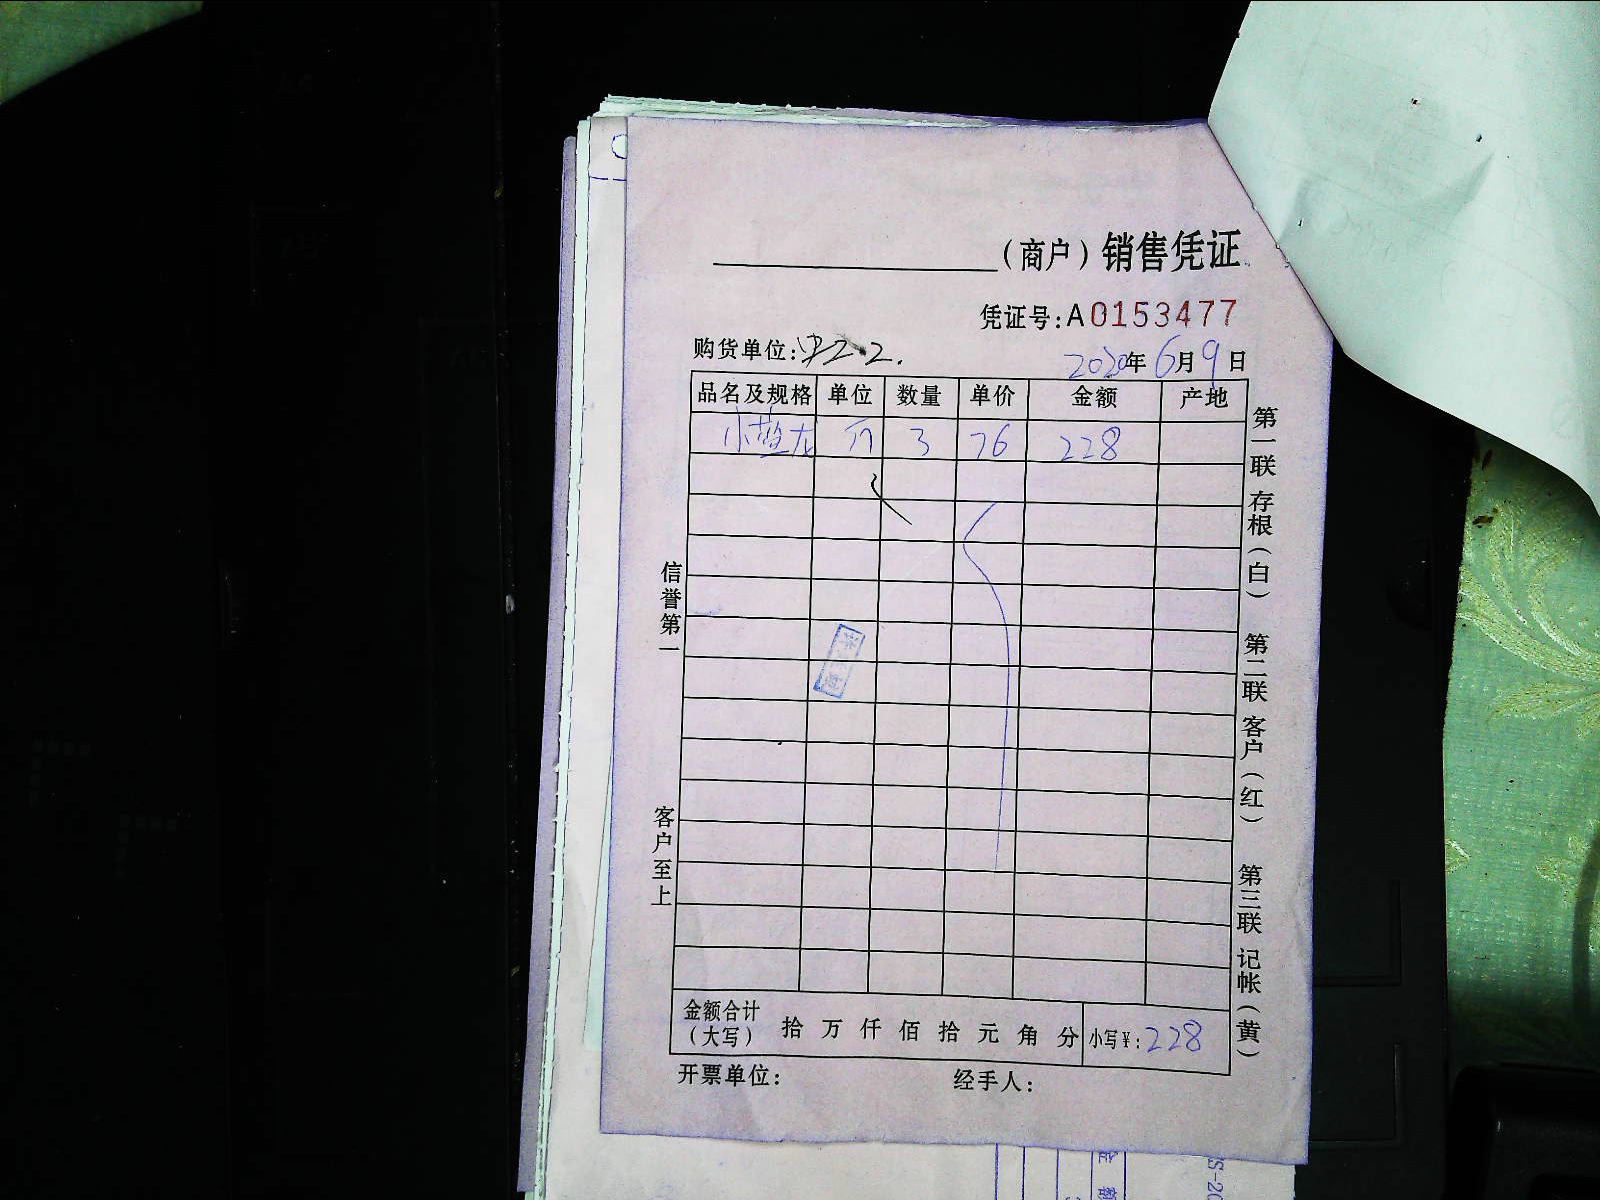 （商户）销售凭证
凭证号:A0153477
购货单位:
2020年6月9日
品名及规格 单位 数量 单价 金额 产地
小蓝龙 斤 3 76 228
金额合计（大写） 拾 万 仟 佰 拾 元 角 分 小写¥:228
开票单位: 经手人:
信誉第一
客户至上
第一联 存根（白）
第二联 客户（红）
第三联 记帐（黄）